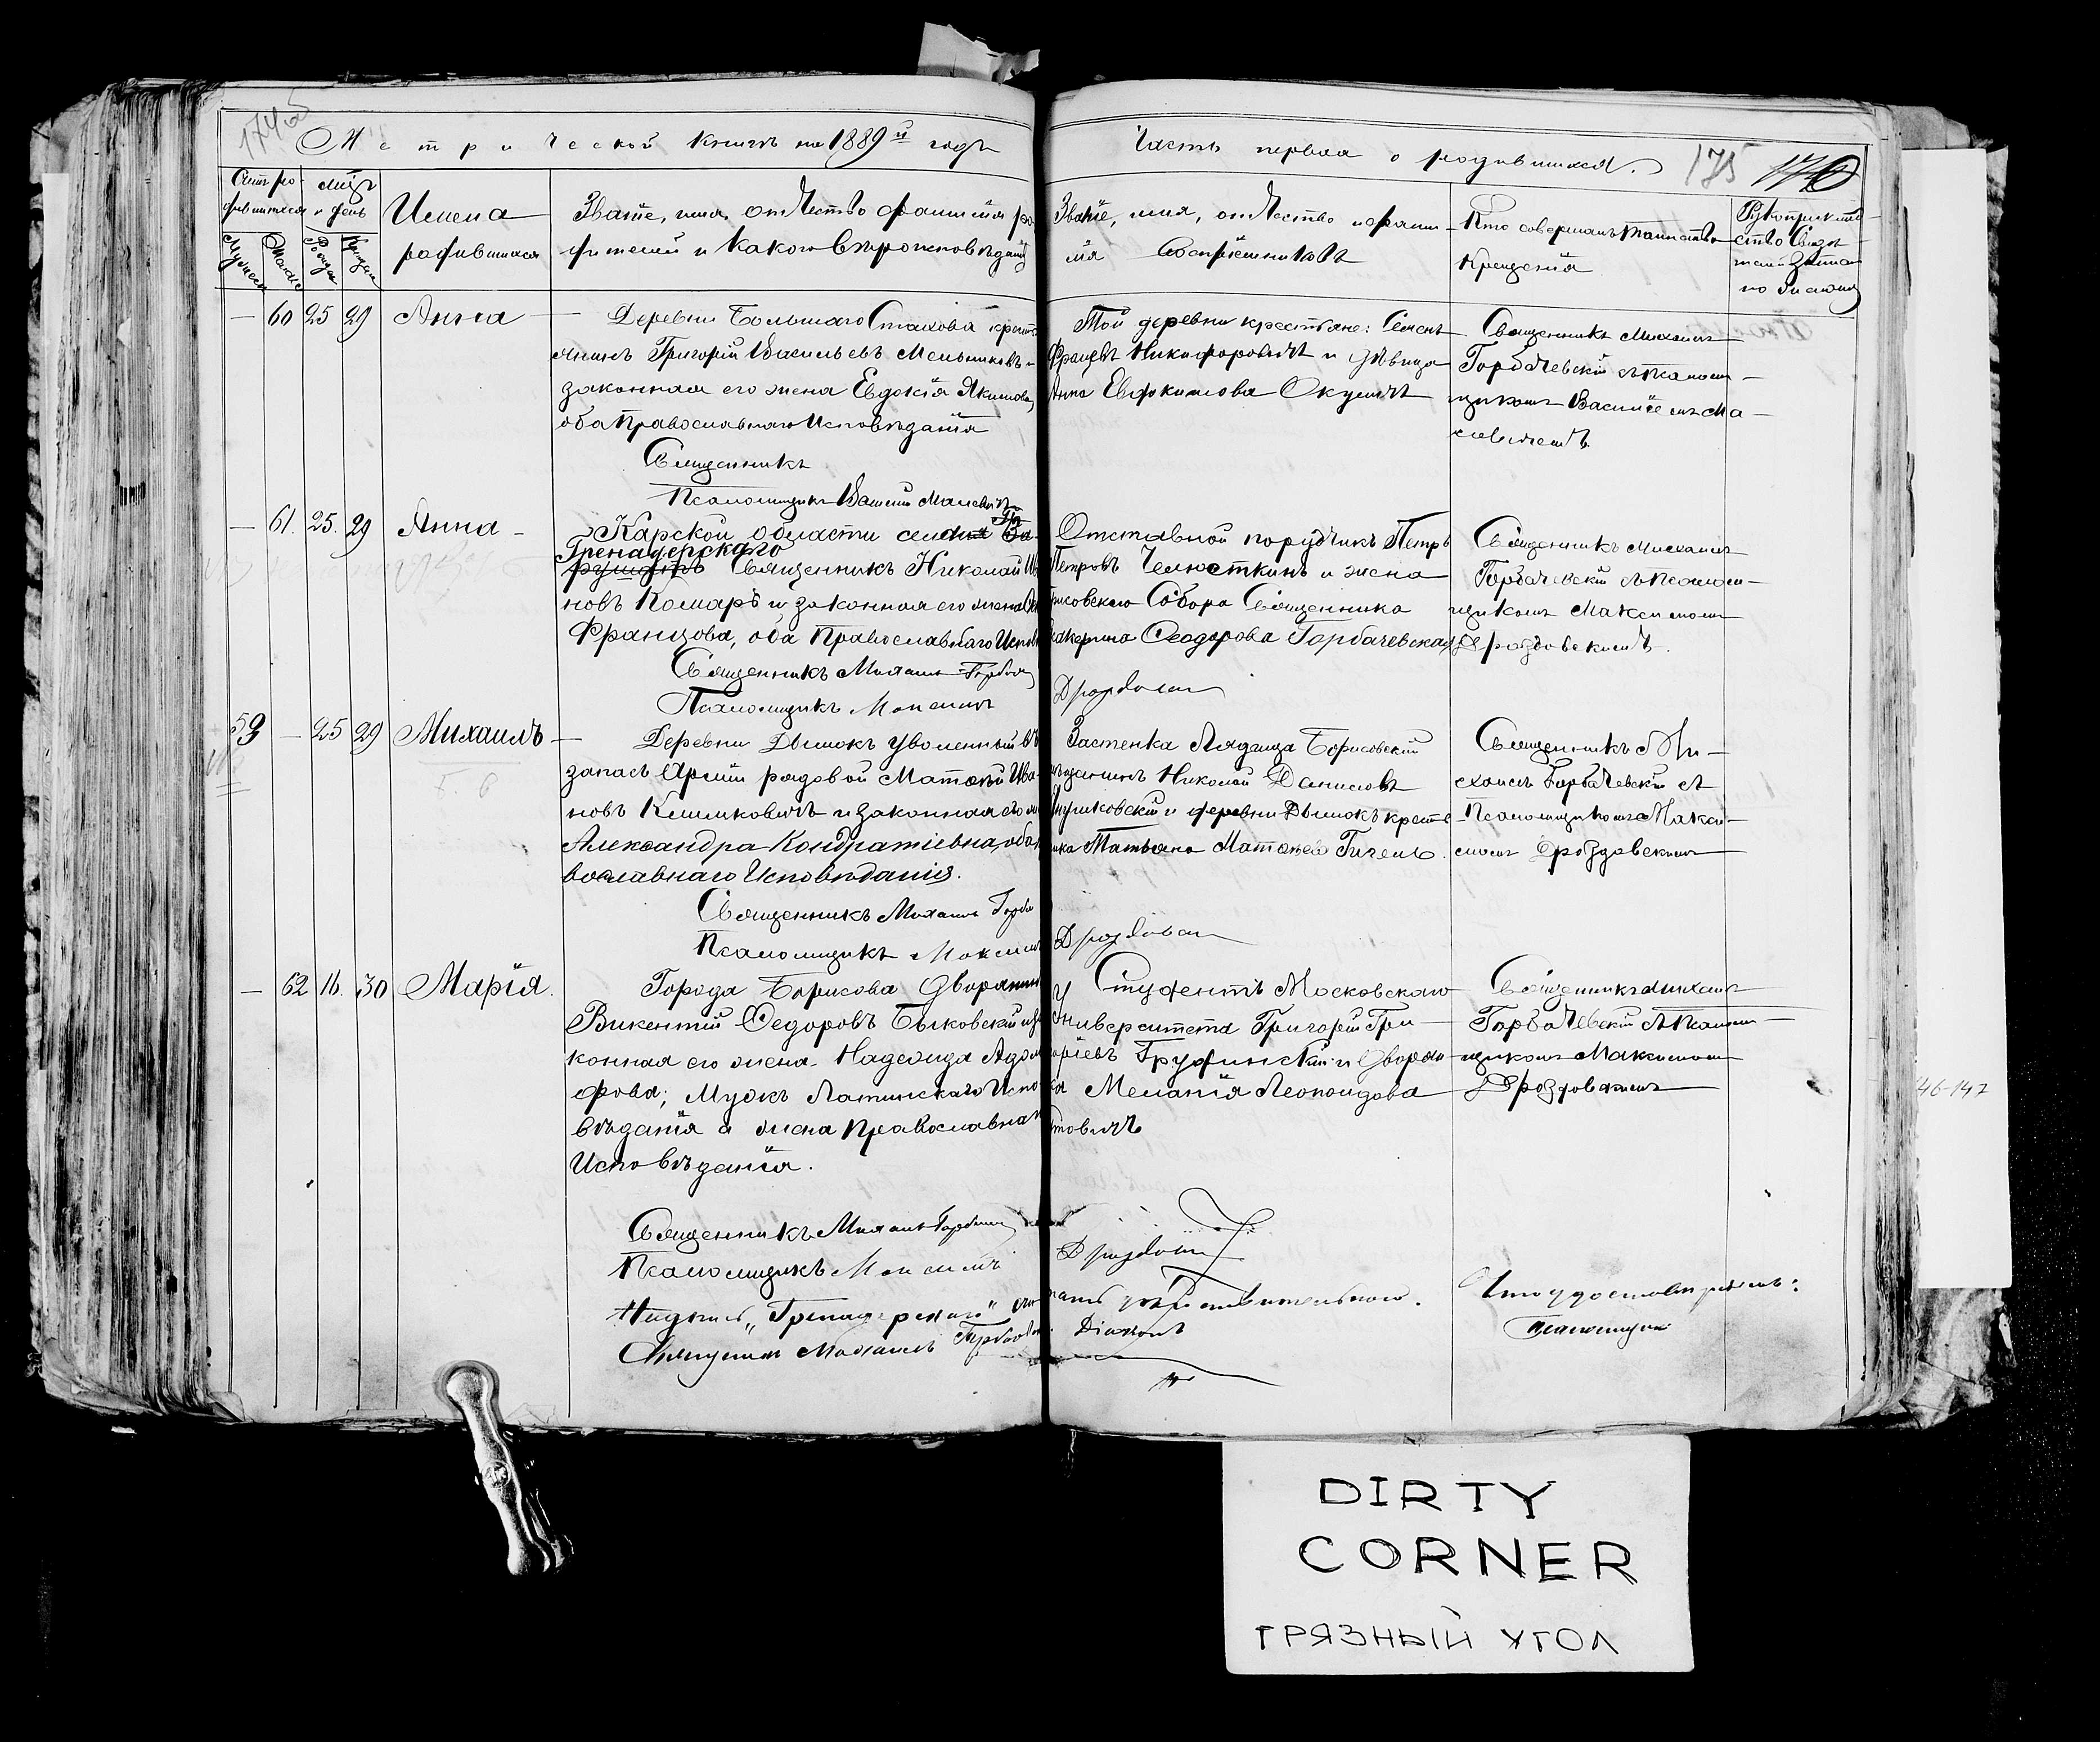 Метрической книги на 1889й годъ
Часть первая о родившихся.
175
Имена
родившихся
Званіе, имя, отчество фамилія ро-
дителей и какого вѣроисповѣданія
Званіе, имя, отчество и фами-
лія воспріемниковъ
Кто совершалъ таинство
крещенія
— 60 25 29 Анна —
Деревни Большаго Стахова кресть
янинъ Григорій Васильевъ Мельниковъ и
законная его жена Евдокія Якимова,
оба Православнаго Исповѣданія
Священникъ
Псаломщикъ Василій Малевичъ
Той деревни крестьяне: Семенъ
Никифоровичъ и дѣвица
Анна Евдокимова Окуличъ
Священникъ Михаилъ
Горбачевскій съ псалом-
щикомъ Василіемъ Ма-
левичемъ
— 61. 25. 29 Анна —
Карской области
Гренадерскаго
Священникъ Николай Ива
новъ Комаръ и законная его жена
Францова, оба Православнаго Испов
Священникъ Михаилъ Горбач
Псаломщикъ Максимъ
Отставной поручикъ Петръ
Петровъ Челюсткинъ и жена
рисовскаго Собора Священника
Екатерина Ѳеодорова Горбачевская
Дроздовскій
Священникъ Михаилъ
Горбачевскій съ псалом-
щикомъ Максимомъ
Дроздовскимъ.
59 — 25 29 Михаилъ —
Деревни Дымокъ уволенный въ
запасъ Арміи рядовой Матѳей Ива-
новъ Климковичъ и законная его же
Александра Кондратіевна, оба
вославнаго Исповѣданія.
Священникъ Михаилъ Горба
Псаломщикъ Максимъ
Застенка Лядища Борисовскій
мѣщанинъ Николай Даниловъ
и деревни Дымокъ кресть
янка Татьяна Матѳеева Гичель.
Дроздовскій
Священникъ Ми-
хаилъ Горбачевскій съ
Псаломщикомъ Макси-
момъ Дроздовскимъ
— 62 16. 30 Марія.
Города Борисова Дворянин
Викентій Ѳедоровъ Быковскій и за
конная его жена Надежда Адоль
фова; Мужъ Латинскаго Испо
вѣданія а жена Православная
Исповѣданія.
Священникъ Михаилъ Горбачев
Псаломщикъ Максимъ
Студентъ Московскаго
Университета Григорій Гри-
оріевъ Грудинскій и Дворян
ка Меланія Леопольдова
товичъ
Дроздовскій
Священникъ Михаилъ
Горбачевскій съ Псалом-
щикомъ Максимомъ
Дроздовскимъ
Надпись „Гренадерскаго"
Священникъ Михаилъ Горбачевскій
Діаконъ
Что удостовѣряемъ:
Псаломщикъ
46-147
DIRTY
CORNER
ГРЯЗНЫЙ УГОЛ